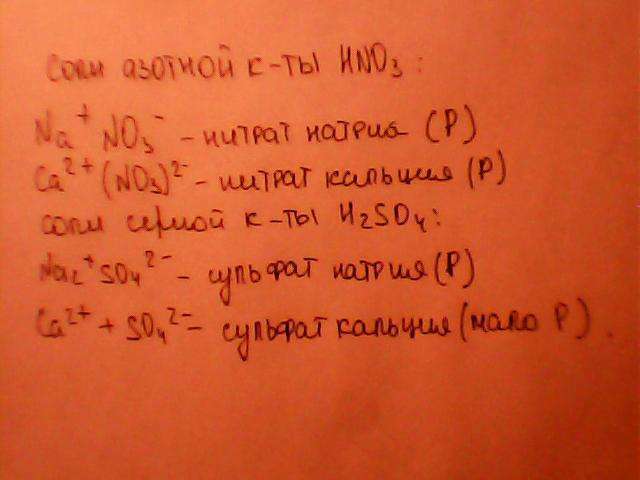 соли азотной к-ты HNO₃:
Na⁺ NO₃⁻ – нитрат натрия (Р)
Ca²⁺(NO₃)²⁻ – нитрат кальция (Р)
соли серной к-ты H₂SO₄:
Na₂⁺SO₄²⁻ – сульфат натрия (Р)
Ca²⁺ + SO₄²⁻ – сульфат кальция (мало Р).